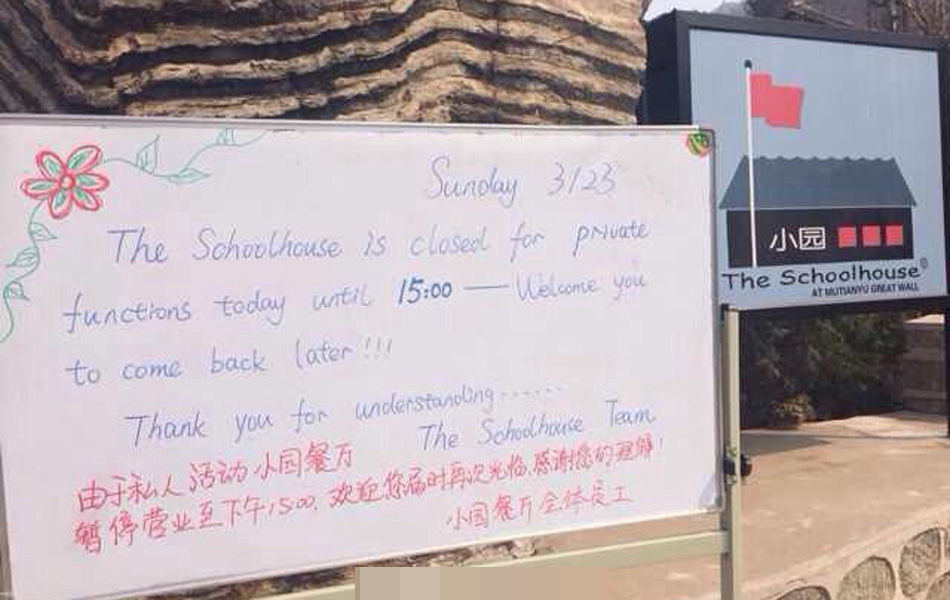 Sunday 3/23
The Schoolhouse is closed for private
functions today until 15:00 — Welcome you
to come back later!!!
Thank you for understanding......
The Schoolhouse Team
由于私人活动小园餐厅
暂停营业至下午15:00. 欢迎您届时再次光临,感谢您的理解!
小园餐厅全体员工
小园
The Schoolhouse®
AT MUTIANYU GREAT WALL